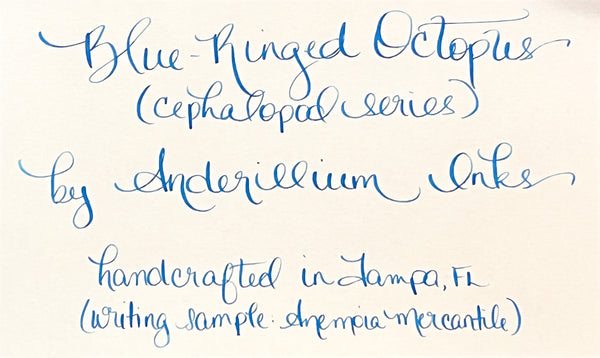 Blue-Ringed Octopus
(cephalopod series)
by Anderillium Inks
handcrafted in Tampa, FL
(writing sample: Anemoia Mercantile)